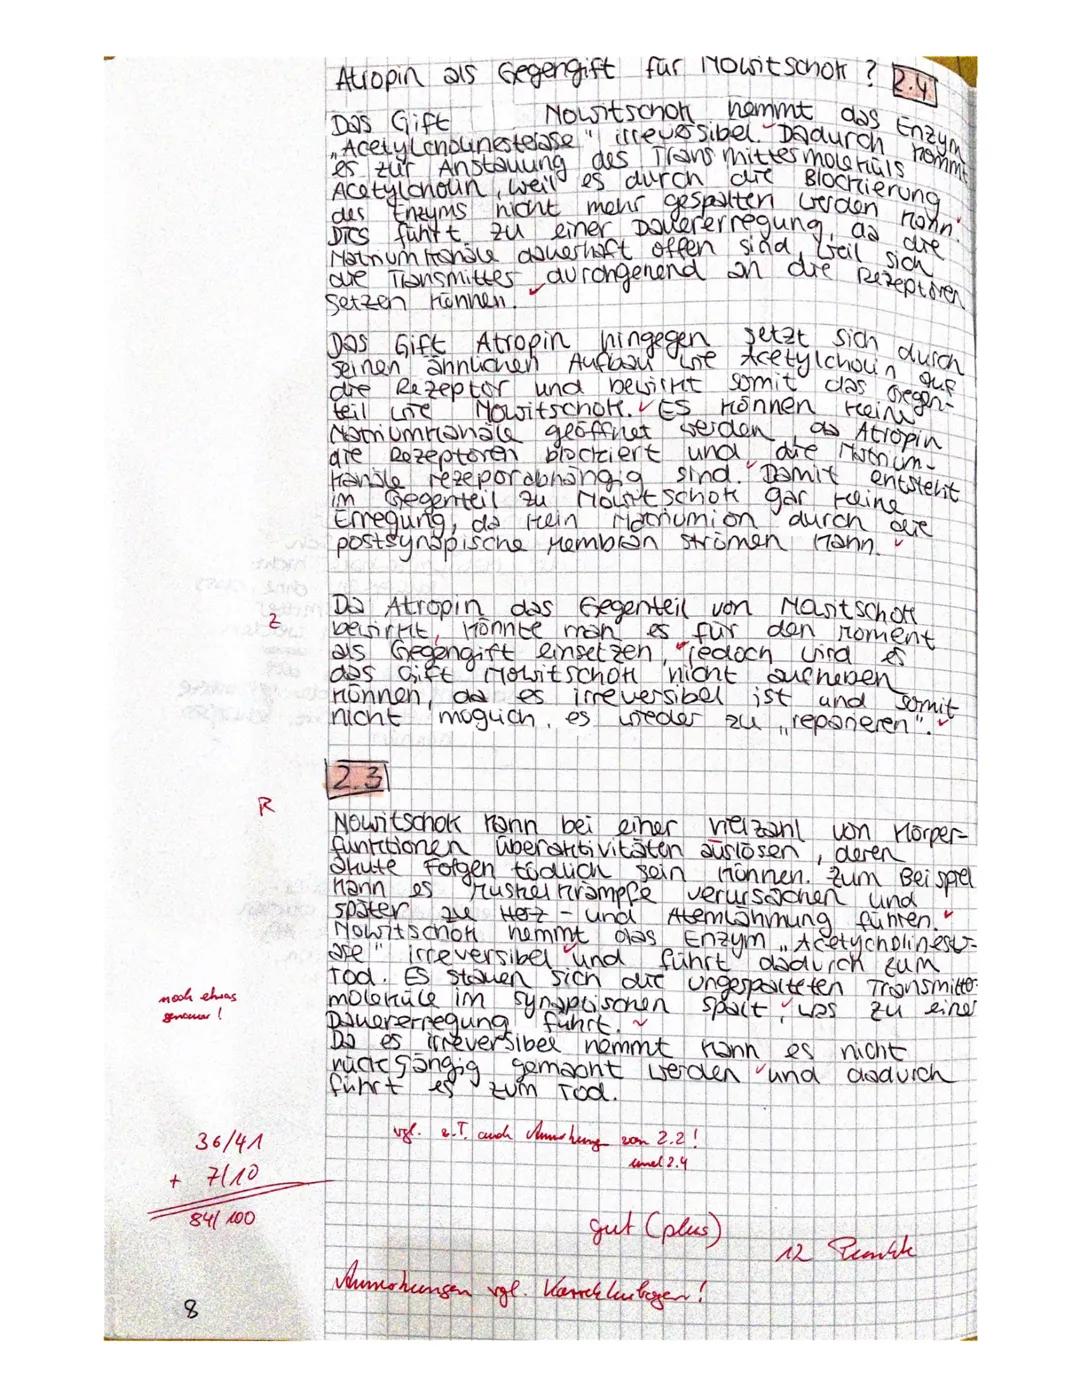 Atropin als Gegengift für Nowitschok ? 2.4
Das Gift Nowitschok hemmt das Enzym
„Acetylcholinesterase" irreversibel. Dadurch kommt
es zur Anstauung des Transmittermoleküls
Acetylcholin, weil es durch die Blockierung
des Enzyms nicht mehr gespalten werden kann.
Dies führt zu einer Dauererregung, da die
Natriumkanäle dauerhaft offen sind, weil sich
die Transmitter durchgehend an die Rezeptoren
setzen können.
Das Gift Atropin hingegen setzt sich durch
seinen ähnlichen Aufbau wie Acetylcholin auf
die Rezeptor und bewirkt somit das Gegen-
teil wie Nowitschok. Es können keine
Natriumkanäle geöffnet werden, da Atropin
die Rezeptoren blockiert und die Natrium-
kanäle rezeporabhängig sind. Damit entsteht
im Gegenteil zu Nowitschok gar keine
Erregung, da kein Natriumion durch die
postsynapische Membran strömen kann.
Z
Da Atropin das Gegenteil von Nowitschok
bewirkt, könnte man es für den Moment
als Gegengift einsetzen, jedoch wird es
das Gift Nowitschok nicht aufheben
können, da es irreversibel ist und somit
nicht möglich, es wieder zu „reparieren".
2.3
R
Nowitschok kann bei einer Vielzahl von Körper-
funktionen überaktivitäten auslösen, deren
akute Folgen tödlich sein können. Zum Beispiel
kann es Muskelkrämpfe verursachen und
später zu Herz- und Atemlähmung führen.
Nowitschok hemmt das Enzym „Acetycholinest-
ase" irreversibel und führt dadurch zum
Tod. Es stauen sich die ungespalteten Transmitter-
moleküle im synaptischen Spalt, was zu einer
Dauererregung führt.
Da es irreversibel hemmt kann es nicht
rückgängig gemacht werden und dadurch
führt es zum Tod.
noch etwas
genauer!
vgl. z.T. auch Anmerkung von 2.2!
und 2.4
36/41
+ 7/10
84/100
gut (plus)
12 Punkte
Anmerkungen vgl. Korrekturbogen!
8